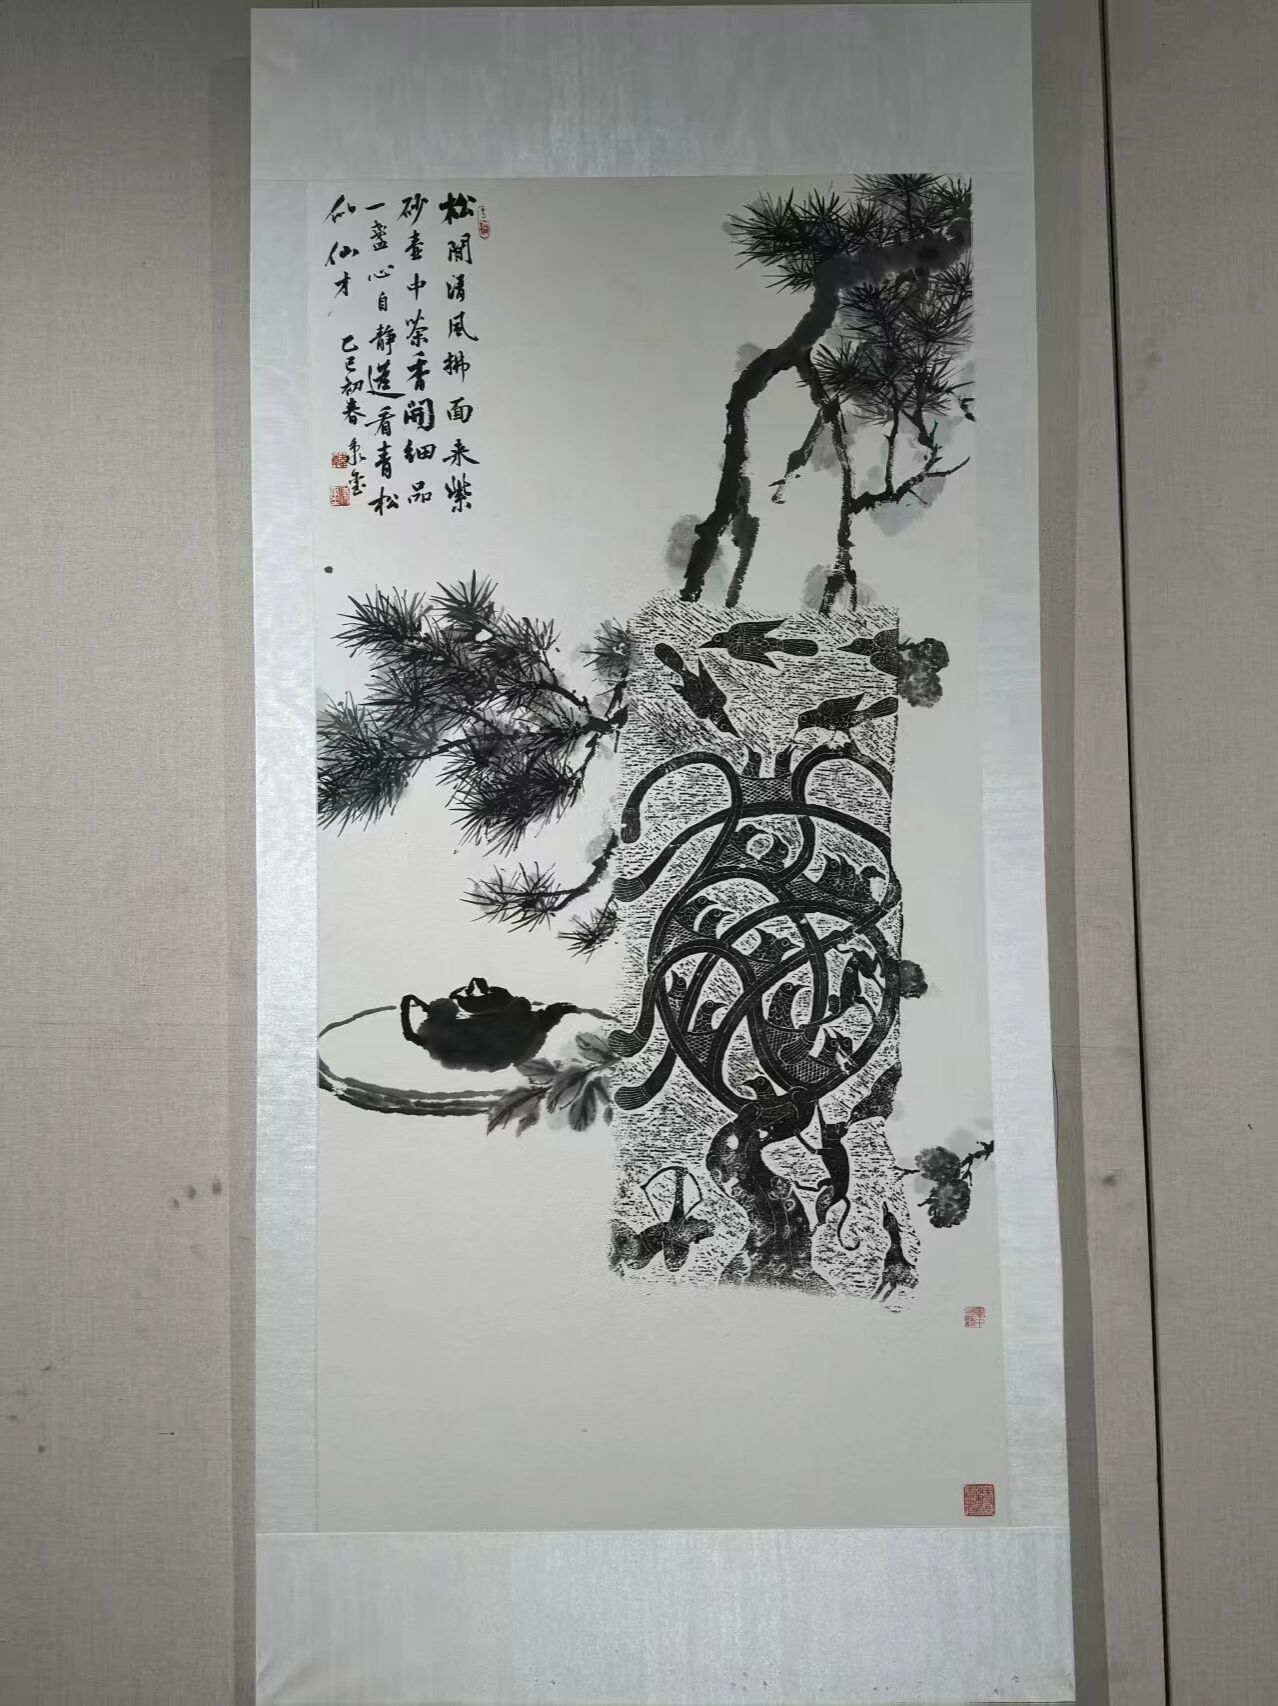 松間清風拂面来紫
砂壺中茶香開細品
一盞心自静遥看青松
似仙才 乙巳初春